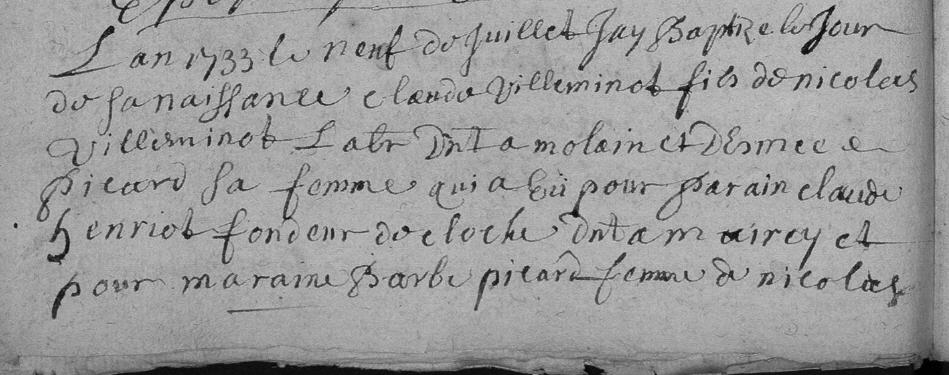 L an 1733 le neuf de Juillet Jay Baptize le Jour
de sa naissance claude Villeminot fils de nicolas
Villeminot Labr Dnt a molain et Desmee
Picard sa femme qui a Eü pour Parain claude
henriot fondeur de cloche dnt a mairey et
pour maraine Barbe picard femme de nicolas